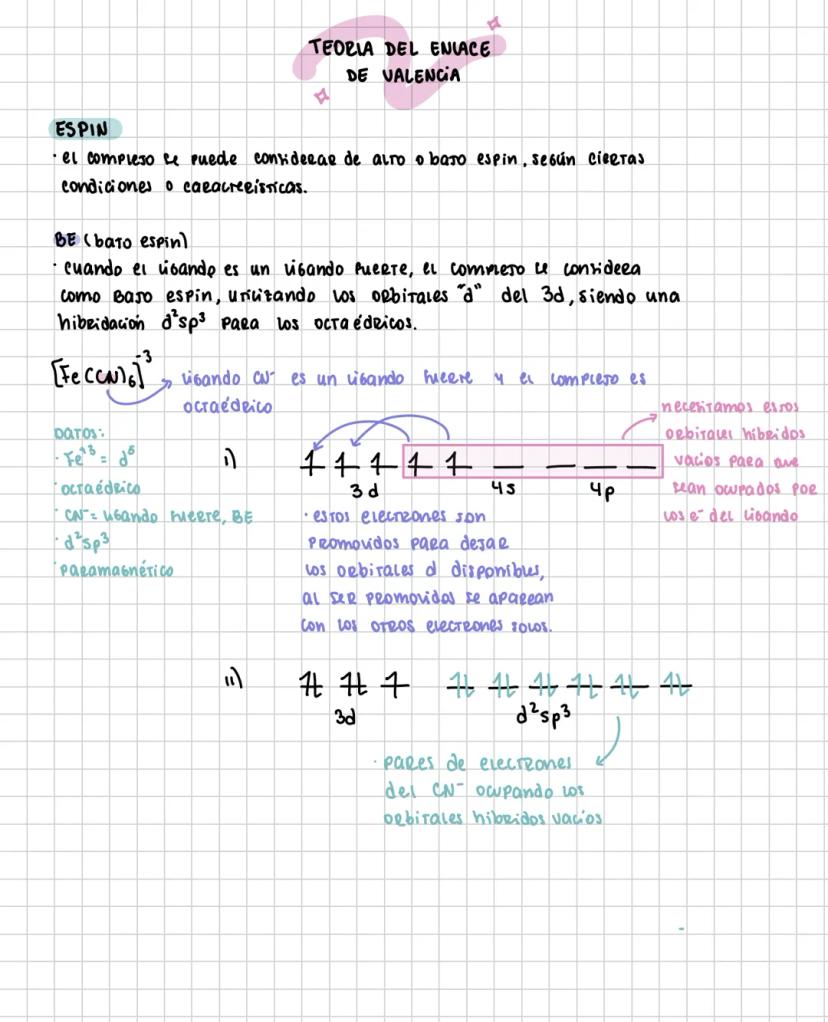 TEORIA DEL ENLACE
DE VALENCIA
ESPIN
· el complejo se puede considerar de alto o bajo espin, según ciertas
condiciones o características.
BE (bajo espin)
· cuando el ligando es un ligando fuerte, el complejo se considera
como bajo espin, utilizando los orbitales "d" del 3d, siendo una
hibridación d²sp³ para los octaédricos.
[Fe(CN)6]⁻³
ligando CN⁻ es un ligando fuerte y el complejo es
octaédrico
necesitamos estos
orbitales hibridos
vacios para que
sean ocupados por
los e⁻ del ligando
DATOS:
· Fe⁺³ = d⁵
· octaédrico
· CN⁻ = ligando fuerte, BE
· d²sp³
· paramagnético
i)
3d 4s 4p
· estos electrones son
promovidos para dejar
los orbitales d disponibles,
al ser promovidos se aparean
con los otros electrones solos.
ii)
3d d²sp³
· pares de electrones
del CN⁻ ocupando los
orbitales hibridos vacíos